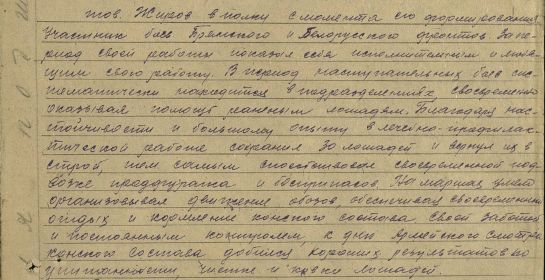 тов. Жиров в полку с момента его формирования
Участник боев Брянского и Белорусского фронтов. За пе-
риод своей работы показал себя исполнительным и любя-
щим свою работу. В период наступательных боев сис-
тематически находится в подразделениях своевременно
оказывая помощь раненым лошадям. Благодаря нас-
тойчивости и большому опыту в лечебно-профилак-
тической работе сохранил 30 лошадей и вернул их в
строй, тем самым способствовал своевременной под-
возке продфуража и боеприпасов. На маршах умело
организовывал движение обозов, обеспечивал своевременный
отдых и кормление конского состава. Своей заботой
и постоянным контролем, к дню Армейского смотра
конского состава добился хороших результатов по
упитанности чистке и ковки лошадей.